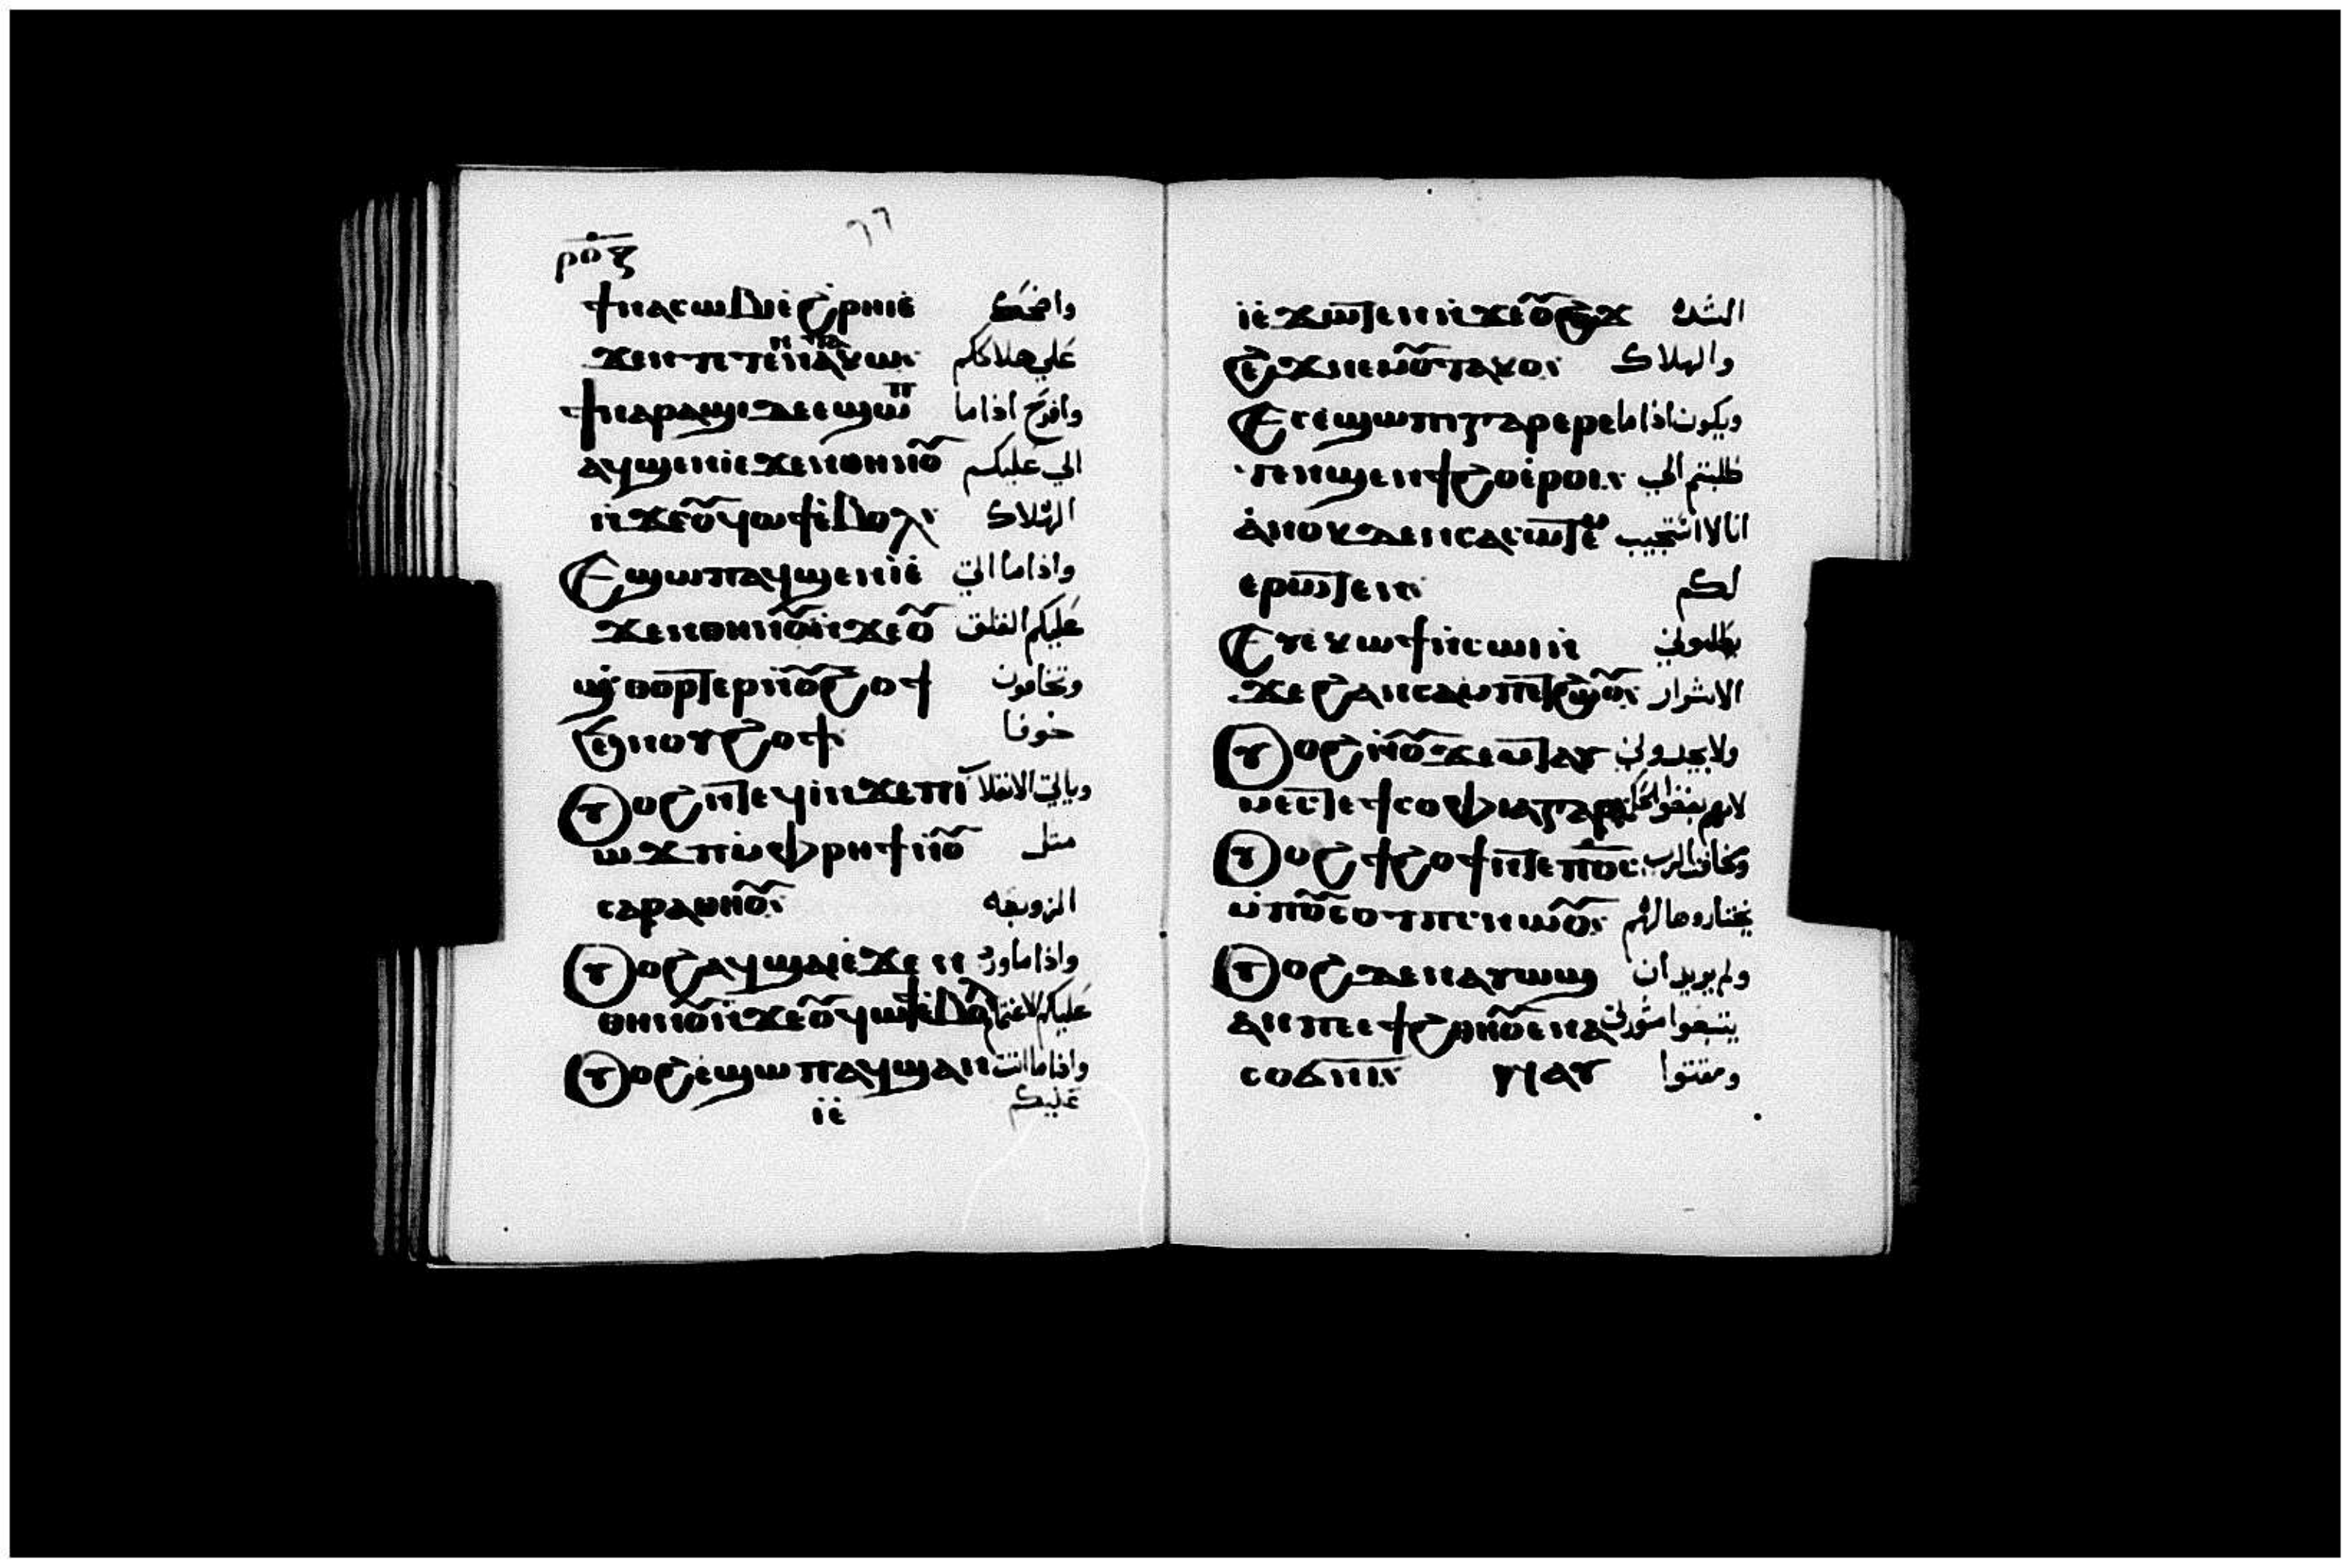 ⲣⲟⲍ
ϯⲛⲁⲥⲱⲃⲓ ⲉ̇ϩ̇ⲣⲏⲓ ⲉ̇ واضحك
ϫⲉⲛ ⲡⲉⲧⲉⲛⲧⲁⲕⲱ: علي هلاككم
ϯⲛⲁⲣⲁϣⲓ ⲇⲉ ⲉϣⲱⲡ وافرح اذا ما
ⲁϥϣⲉⲛⲓ ⲉϫⲉⲛ ⲑⲏⲛⲟ̃ اتي عليكم
ⲛ̇ϫⲉⲟ̃ϥⲱϯ ⲉ̇ⲃⲟⲗ: الهلاك
Ⲉϣⲱⲡ ⲁϥϣⲉⲛⲓ̇ⲉ̇ واذا ما اتي
ϫⲉⲛ ⲑⲏⲛⲟ̃ ⲛ̇ϫⲉⲟ̃ عليكم القلق
ϣ̇ⲑⲟⲣⲧⲉⲣ ⲛⲟ̃ϩⲟϯ وتخافون
ϧⲉⲛⲟⲩϩⲟϯ: خوفا
Ⲟⲩⲟϩ ⲛ̅ⲧⲉϥⲓ̇ ⲛ̇ϫⲉⲡⲓ وياتي الانقلاب
ⲱϫⲡ ⲙ̇ⲫⲣⲏϯ ⲛ̇ⲟ̃ متل
ⲥⲁⲣⲁⲑⲏⲟ̃: الزوبعه
Ⲟⲩⲟϩ ⲁϥϣⲁⲛⲓ̇ ⲉ̇ϫⲉⲛ واذا ما ورد
ⲑⲏⲛⲟ̃ ⲛ̇ϫⲉⲟ̃ϥⲱϯ ⲉ̇ⲃⲟⲗ
Ⲟⲩⲟϩ ⲉ̇ϣⲱⲡ ⲁϥϣⲁⲛ واذا ما اتت
ⲓ̇ⲉ̇ عليكم
ⲓ̇ⲉ̇ϫⲱⲧⲉⲛ ⲛ̇ϫⲉⲟ̃ϩⲟϫ الشده
ϩⲉϫ ⲛⲉⲙⲟ̃ⲧⲁⲕⲟ: والهلاك
Ⲉⲥⲉ̇ϣⲱⲡⲓ ⲅⲁⲣ ⲉⲣⲉ ويكون اذا ما
ⲧⲉⲛϣⲉⲛϯϩⲟ ⲉ̇ⲣⲟⲓ: طلبتم الي
ⲁ̇ⲛⲟⲕ ⲇⲉ ⲛⲥⲁⲥⲱⲧⲉⲙ انا لا استجيب
ⲉⲣⲱⲧⲉⲛ: لكم
Ⲉⲩⲉ̇ⲕⲱϯ ⲛ̇ⲥⲱⲓ ⲛ̇ يطلبوني
ϫⲉϩⲁⲛⲥⲁⲙⲡⲉⲧϩⲱⲟ̃: الاشرار
Ⲟⲩⲟϩ ⲛ̇ⲛⲟ̃ϫⲉⲙⲧ ⲁⲩ ولا يجدوني
ⲙⲉⲥⲧⲉ ϯⲥⲟⲫⲓⲁ ⲅⲁⲣ
Ⲟⲩⲟϩ ϯϩⲟϯ ⲛ̅ⲧⲉⲡⲟ̅ⲥ̅: ومخافة الرب
ⲙ̇ⲡⲟ̃ⲥⲟⲧⲡⲥ ⲛⲱⲟ̃: يختاروها لهم
Ⲟⲩⲟϩ ⲇⲉ ⲛⲁⲩⲱϣ ولم يريد ان
ⲁⲛⲡⲉ ⲉϯϩⲑⲏⲟ̃ ⲉⲛⲁ يتبعوا مشورتي
ⲥⲟϭⲛⲓ: ⲩⲁⲩ ومقتوا